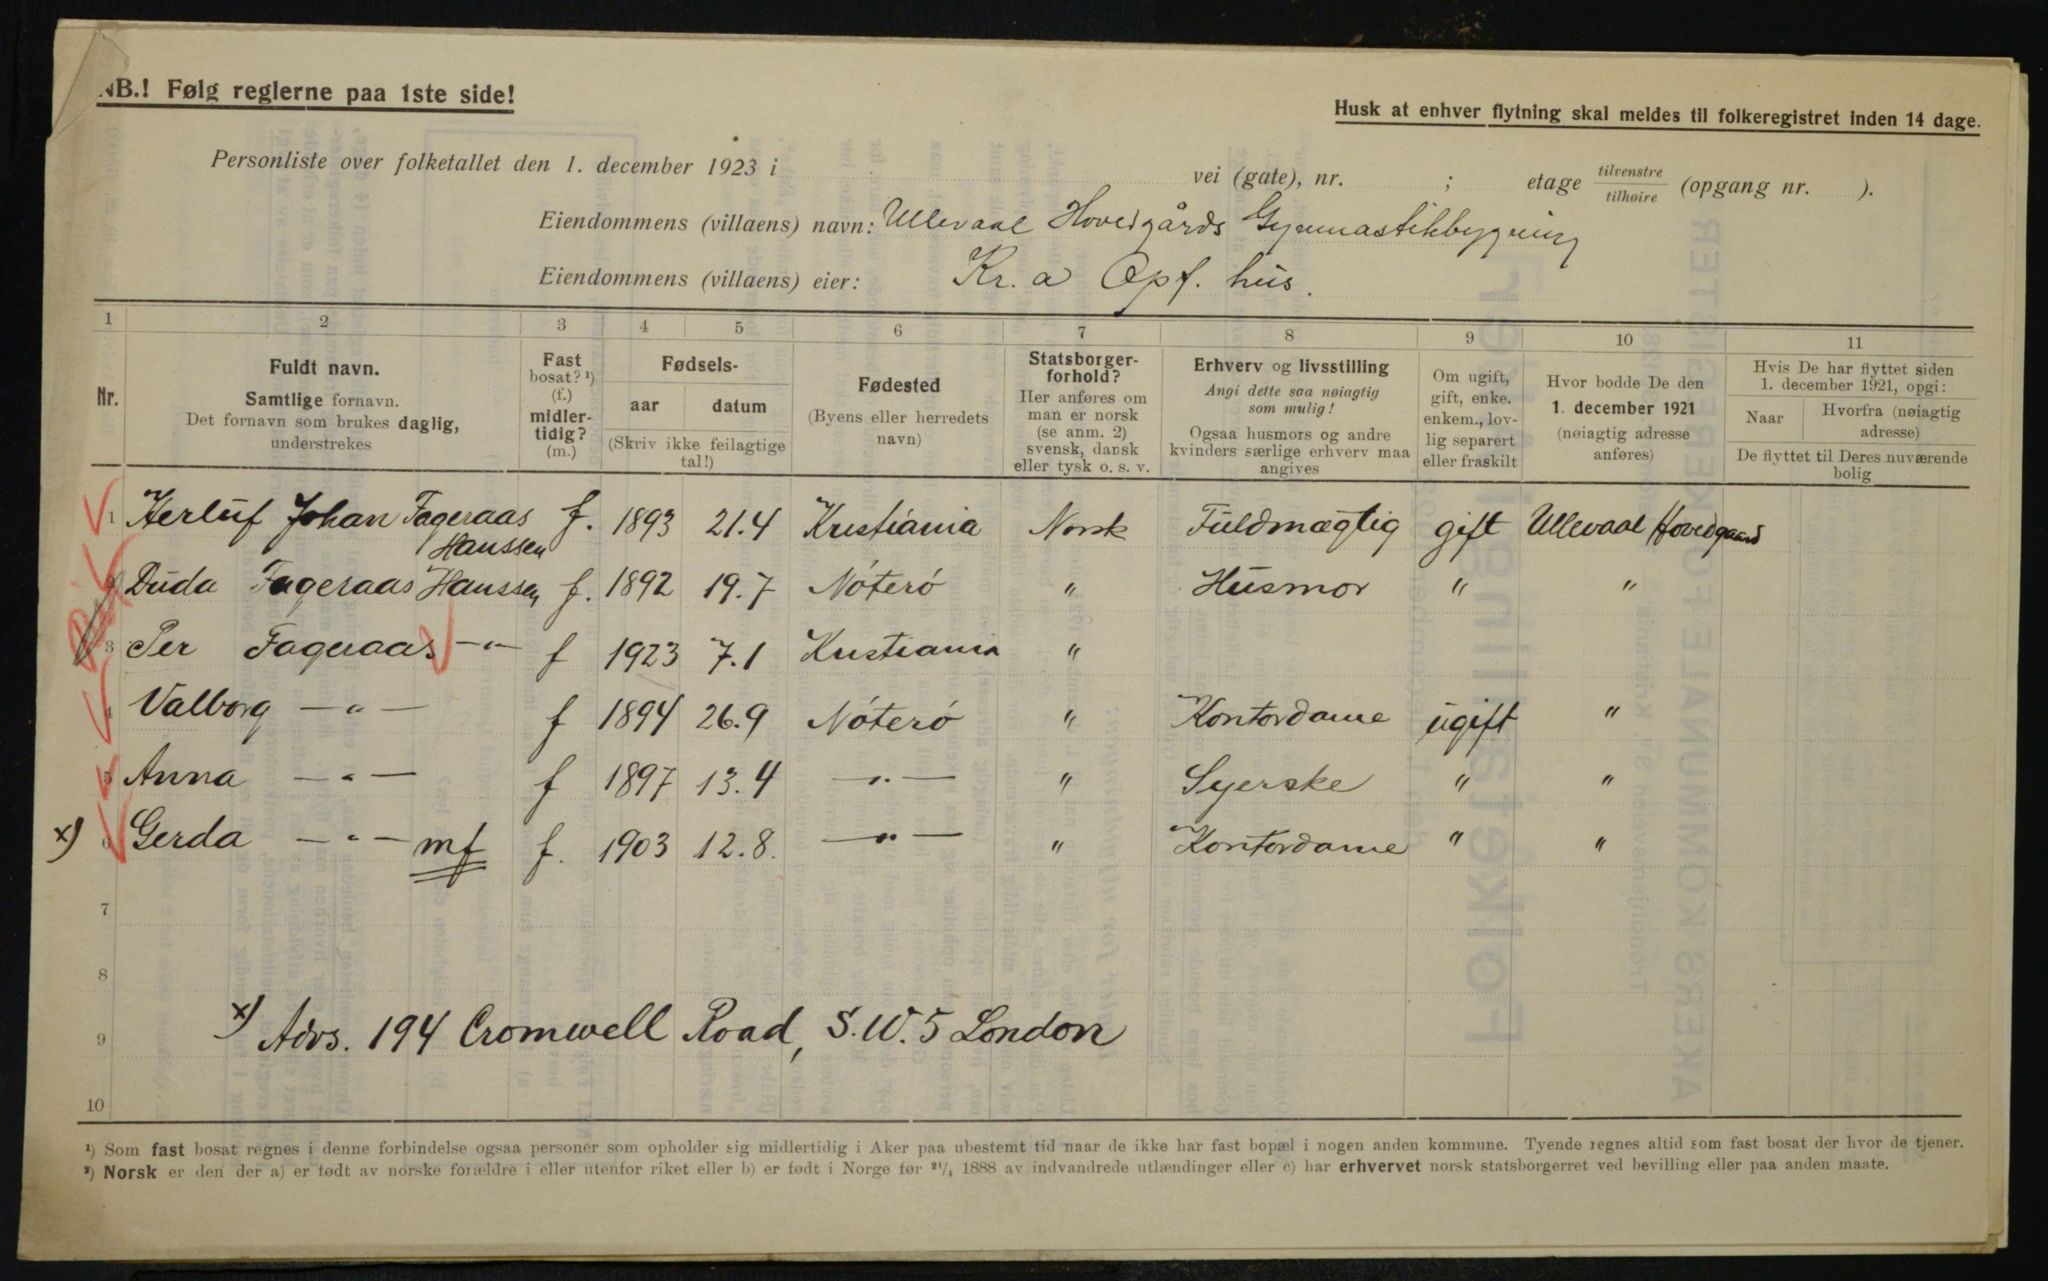 NB.! Følg reglerne paa 1ste side!
Husk at enhver flytning skal meldes til folkeregistret inden 14 dage.
Personliste over folketallet den 1. december 1923 i vei (gate), nr. ; etage tilvenstre/tilhøire (opgang nr. ).
Eiendommens (villaens) navn: Ullevaal Hovedgårds Gymnastikbygning
Eiendommens (villaens) eier: Kr.a Opf. hus.
1 2 3 4 5 6 7 8 9 10 11
Nr.
Fuldt navn.
Samtlige fornavn.
Det fornavn som brukes daglig,
understrekes
Fast
bosat? ¹)
(f.)
midler-
tidig?
(m.)
Fødsels-
aar datum
(Skriv ikke feilagtige
tal!)
Fødested
(Byens eller herredets
navn)
Statsborger-
forhold?
Her anføres om
man er norsk
(se anm. 2)
svensk, dansk
eller tysk o. s. v.
Erhverv og livsstilling
Angi dette saa nøiagtig
som mulig!
Ogsaa husmors og andre
kvinders særlige erhverv maa
angives
Om ugift,
gift, enke.
enkem., lov-
lig separert
eller fraskilt
Hvor bodde De den
1. december 1921
(nøiagtig adresse
anføres)
Hvis De har flyttet siden
1. december 1921, opgi:
Naar Hvorfra (nøiagtig
adresse)
De flyttet til Deres nuværende
bolig
1 Herluf Johan Fageraas f. 1893 21.4 Kristiania Norsk Fuldmægtig gift Ullevaal Hovedgaard
Hanssen
Duda Fageraas Hanssen f. 1892 19.7 Nöterö " Husmor " "
3 Per Fageraas —"— f 1923 7.1 Kristiania "
4 Valborg —"— f 1894 26.9 Nöterö " Kontordame ugift "
5 Anna —"— f 1897 13.4 —"— " Syerske " "
x) 6 Gerda —"— mf f. 1903 12.8. —"— " Kontordame " "
7
8
x) Adrs. 194 Cromwell Road, S.W.5 London
9
10
¹) Som fast bosat regnes i denne forbindelse ogsaa personer som opholder sig midlertidig i Aker paa ubestemt tid naar de ikke har fast bopæl i nogen anden kommune. Tyende regnes altid som fast bosat der hvor de tjener.
²) Norsk er den der a) er født av norske forældre i eller utenfor riket eller b) er født i Norge før ²¹/₄ 1888 av indvandrede utlændinger eller c) har erhvervet norsk statsborgerret ved bevilling eller paa anden maate.